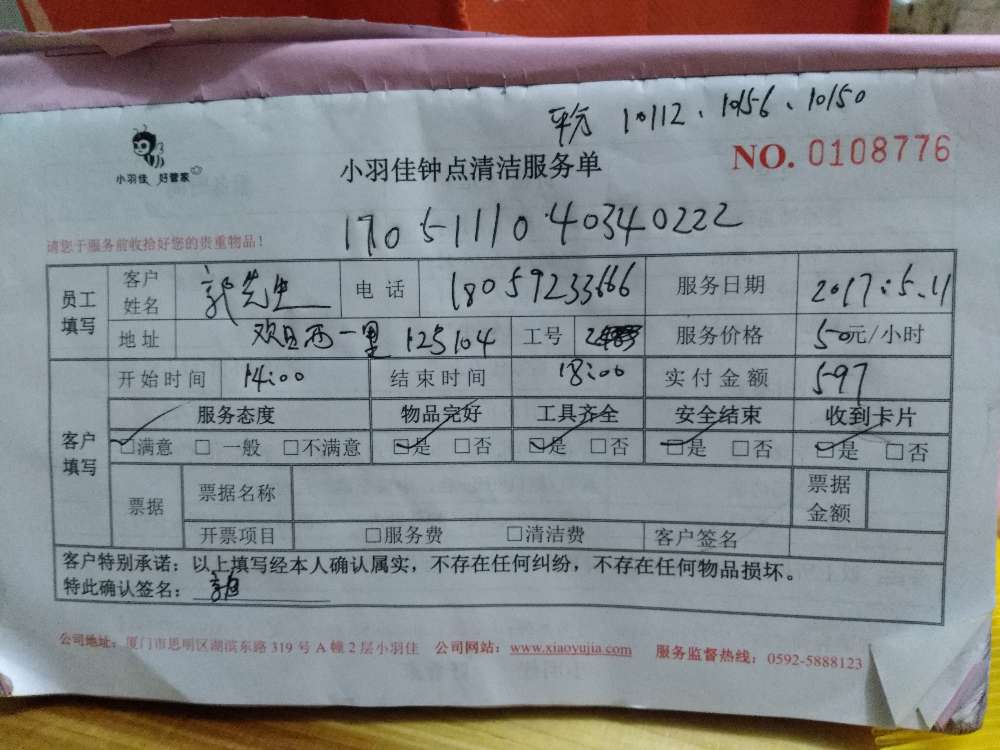 平分 10112、1056、10150
小羽佳 好管家
小羽佳钟点清洁服务单
NO. 0108776
1705111040340222
请您于服务前收拾好您的贵重物品！
员工填写 客户姓名 郭先生 电话 18059233666 服务日期 2017.5.11
地址 欢旦西一里 125104 工号 服务价格 50元/小时
客户填写 开始时间 14:00 结束时间 18:00 实付金额 597
服务态度 物品完好 工具齐全 安全结束 收到卡片
☑满意 □一般 □不满意 ☑是 □否 ☑是 □否 ☑是 □否 ☑是 □否
票据 票据名称 票据金额
开票项目 □服务费 □清洁费 客户签名
客户特别承诺：以上填写经本人确认属实，不存在任何纠纷，不存在任何物品损坏。
特此确认签名：
公司地址：厦门市思明区湖滨东路 319 号 A 幢 2 层小羽佳 公司网站：www.xiaoyujia.com 服务监督热线：0592-5888123